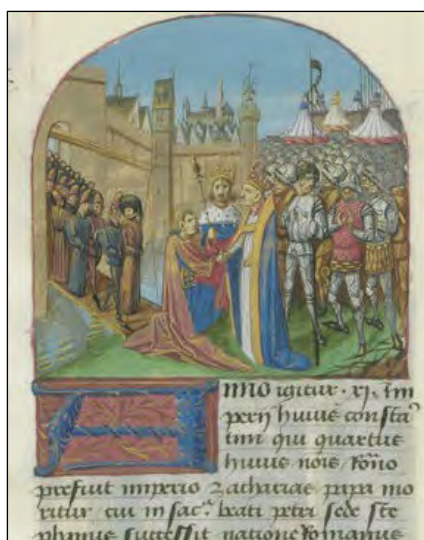 ANNO igitur · xj · Im
perij huius constā
tini qui quartus
huius nois Rōno
prefuit imperio zacharias papa mo
ritur cui in sac.ᵃ beati petri sede ste
phanus successit natione Romanus